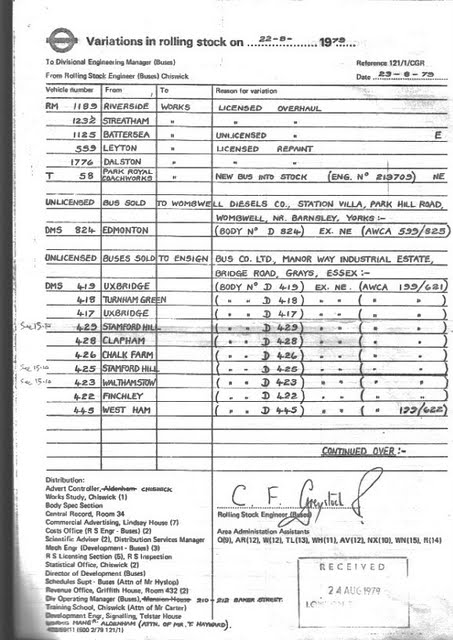 Variations in rolling stock on 22-8- 1979
To Divisional Engineering Manager (Buses) Reference 121/1/CGR
From Rolling Stock Engineer (Buses) Chiswick Date 23-8-79
Vehicle number From To Reason for variation
RM 1189 RIVERSIDE WORKS LICENSED OVERHAUL
1232 STREATHAM " " "
1125 BATTERSEA " UNLICENSED " E
599 LEYTON " LICENSED REPAINT
1776 DALSTON " " "
T 58 PARK ROYAL COACHWORKS " NEW BUS INTO STOCK (ENG. Nº 213709) NE
UNLICENSED BUS SOLD TO WOMBWELL DIESELS CO., STATION VILLA, PARK HILL ROAD,
WOMBWELL, NR. BARNSLEY, YORKS :-
DMS 824 EDMONTON (BODY Nº D 824) EX. NE (AWCA 599/825)
UNLICENSED BUSES SOLD TO ENSIGN BUS CO. LTD., MANOR WAY INDUSTRIAL ESTATE,
BRIDGE ROAD, GRAYS, ESSEX :-
DMS 419 UXBRIDGE (BODY Nº D 419) EX. NE (AWCA 199/621)
418 TURNHAM GREEN ( " " D 418 ) " " ( " " )
417 UXBRIDGE ( " " D 417 ) " " ( " " )
429 STAMFORD HILL ( " " D 429 ) " " ( " " )
428 CLAPHAM ( " " D 428 ) " " ( " " )
426 CHALK FARM ( " " D 426 ) " " ( " " )
425 STAMFORD HILL ( " " D 425 ) " " ( " " )
423 WALTHAMSTOW ( " " D 423 ) " " ( " " )
422 FINCHLEY ( " " D 422 ) " " ( " " )
445 WEST HAM ( " " D 445 ) " " ( " 199/622)
CONTINUED OVER :-
Distribution:
Advert Controller, Aldenham CHISWICK
Works Study, Chiswick (1)
Body Spec Section
Central Record, Room 34
Commercial Advertising, Lindsay House (7)
Costs Office (R S Engr - Buses) (2)
Scientific Adviser (2), Distribution Services Manager
Mech Engr (Development - Buses) (3)
R S Licensing Section (5), R S Inspection
Statistical Office, Chiswick (2)
Director of Development (Buses)
Schedules Supt - Buses (Attn of Mr Hyslop)
Revenue Office, Griffith House, Room 432 (2)
Div Operating Manager (Buses), 210-212 BAKER STREET.
Training School, Chiswick (Attn of Mr Carter)
Development Engr, Signalling, Telstar House
WORKS MANGR ALDENHAM (ATTN. OF MR. T. HAYWARD).
C. F. Greystock
Rolling Stock Engineer (Buses)
Area Administation Assistants
O(9), AR(12), W(12), TL(13), WH(11), AV(12), NX(10), WN(15), R(14)
RECEIVED
24 AUG 1979